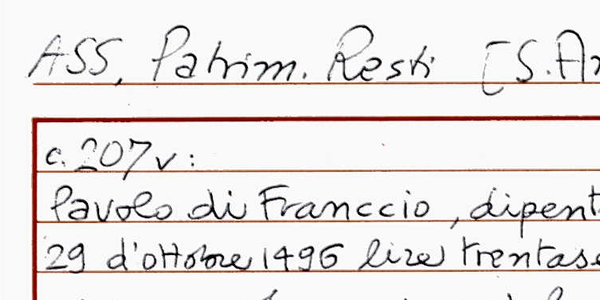 ASS, Patrim. Resti [S.An
c. 207v:
Pavolo di Franccio, dipent
29 d'ottobre 1496 lire trentase